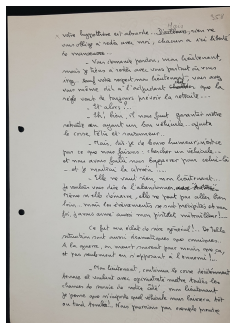 358
votre hypothèse est absurde. D'ailleurs, rien ne
vous oblige à rester avec moi, chacun a sa liberté
de manœuvre.
- Vous demande pardon, mon lieutenant,
mais je tiens à rester avec vous partout où vous
irez. Sauf votre respect mon lieutenant, vous avez
vous-même dit à l'adjudant que la
règle veut de toujours prévoir la retraite...
- Et alors ?...
- Eh bien, il nous faut garantir notre
retraite en ayant un bon véhicule, ajoute
le corse, têtu et raisonneur.
- Mais, dis-je de bonne humeur, est-ce
par ce que nous faisons ? chercher un véhicule...
et nous avons failli nous bagarrer pour celui-là
- et je montre la citroën ....
- Elle ne vaut rien, mon lieutenant..
je voulais vous dire de l'abandonner,
même si elle démarre, elle ne peut pas aller bien
loin. mais les évènements se sont précipités et ma
foi, j'avais armé mon pistolet mitrailleur!..
Ce fut un éclat de rire général!.. De telle
situation sont aussi dramatiques que comiques.
A la guerre, on meurt souvent pour moins que ça,
et pas seulement en s'opposant à l'ennemi!...
- Mon lieutenant, continua le corse
tenace et voulant avec opiniâtreté mettre toutes les
chances de survie de notre côté, mon lieutenant
je pense que n'importe quel véhicule nous laissera tôt
ou tard tomber. Nous pourrions par exemple prendre